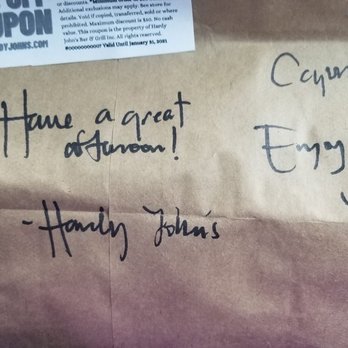 OFF
COUPON
DYJOHNS.COM
or discounts.
Additional exclusions may apply. See store for
details. Void if copied, transferred, sold or where
prohibited. Maximum discount is $50. No cash
value. This coupon is the property of Hardy
John's Bar & Grill Inc. All rights reserved.
Valid Until January 31, 2021
Have a great
afternoon!
- Hardy John's
Enjoy